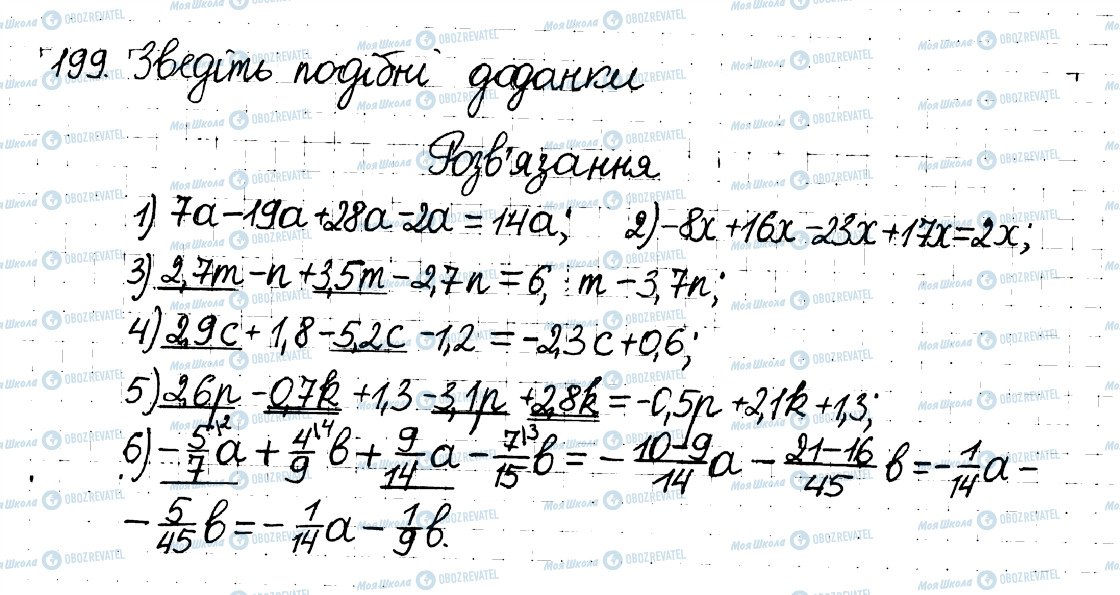 199. Зведіть подібні доданки
Розв'язання
1) 7a - 19a + 28a - 2a = 14a; 2) -8x + 16x - 23x + 17x = 2x;
3) 2,7m - n + 3,5m - 2,7n = 6, m - 3,7n;
4) 2,9c + 1,8 - 5,2c - 1,2 = -2,3c + 0,6;
5) 2,6p - 0,7k + 1,3 - 3,1p + 2,8k = -0,5p + 2,1k + 1,3;
6) - 5/7\2 a + 4/9 b + 9/14 a - 7/15\3 b = - 10-9/14 a - 21-16/45 b = - 1/14 a -
- 5/45 b = - 1/14 a - 1/9 b.